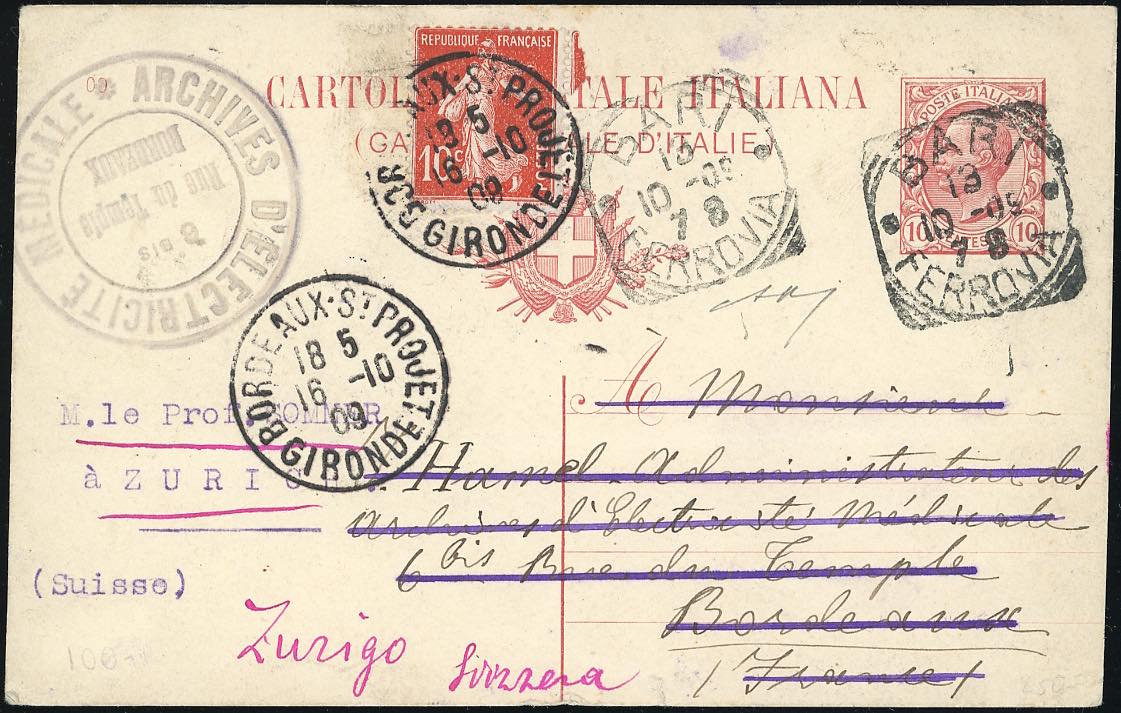 09
CARTOL TALE ITALIANA
(GA LE D'ITALIE)
REPUBLIQUE FRANÇAISE
10c
BORDEAUX-St PROJET
18 5
16 -10
09
GIRONDE
BARI
13
10 -09
18
FERROVIA
POSTE ITALIANE
10 10
BARI
13
10 -09
18
FERROVIA
ARCHIVES D'ELECTRICITÉ MEDICALE *
6 bis
Rue du Temple
BORDEAUX
BORDEAUX-St PROJET
18 5
16 -10
09
GIRONDE
M.le Prof. SOMMER
à ZURICH
(Suisse)
A Monsieur
Hamel-Administrateur des
Archives d'Electricité Médicale
6 bis Rue du Temple
Bordeaux
(France)
Zurigo
Svizzera
100
250